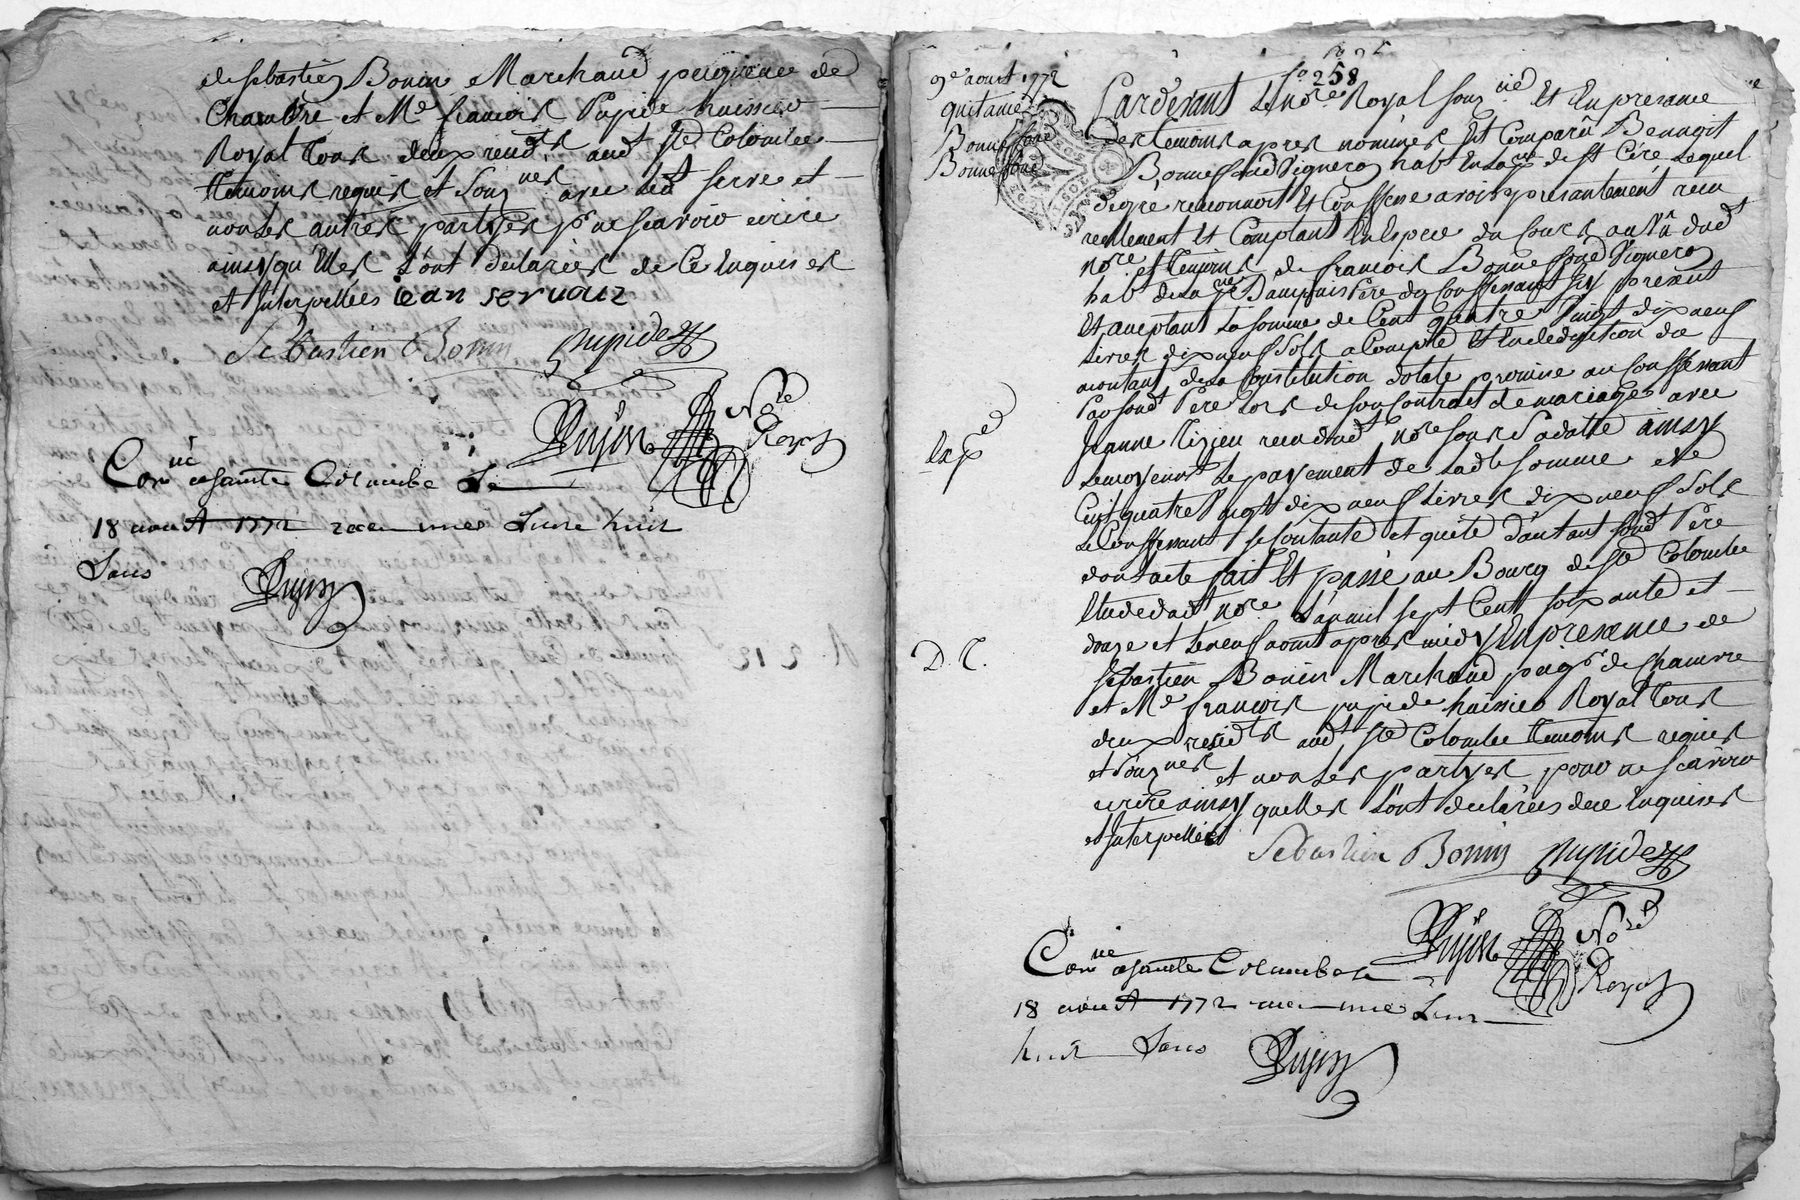 de Sebastien Bonin Marchand peigneur de
Chambre et Me francois Pupide huissier
Royal tous deux resid.ts aud.t Ste Colombe
temoins requis et souz.nes avec led.t serve et
non les autres partyes p.r ne scavoir ecrire
ainsy qu'elles s'ont declarées de Ce Enquises
et Interpellées jean servaiz
Sebastien Bonin pupide
Dujon No.re
Royal
Con.lle a sainte Colombe Le
18 aout 1772 reçu une Livre huit
Sous
Dujon
fo 258
9e aout 1772
quitance
Bonnefond
Bonnefond
Pardevant Le No.re Royal souz.né Et En presance
des temoins apres nommes Est Comparu Benoit
Bonnefond Vigneron hab.t En La p.sse de St Cére Lequel
de gré reconnoit Et Confesse avoir presantement recu
reellement Et Comptant En Espece du Cours au vû dud.t
No.re et temoins de francois Bonnefond Vigneron
hab.t de La p.sse Dampuis Pere du Confessant Icy present
Et aceptant La somme de Cent quatre Vingt dix neuf
Livres dix neuf Sols a Compte Et En deduction du
montant de La Constitution dotale promise au Confessant
Par sond.t Pere Lors de son Contract de mariage avec
Jeanne Tizieu recu dud.t No.re sous Sa datte ainsy
Lemoyenant Le payement de Lad.te somme de
Cent quatre Vingt dix neuf Livres dix neuf Sols
Le Confessant se contante et quitte d'autant sond.t Pere
dont acte fait Et passé au Bourg de Ste Colombe
Etude dud.t No.re L'an mil sept Cent soixante et
douze et Le neuf aout apres midy En presance de
Sebastien Bonin Marchand peig.r de Chambre
et Me francois pupide huissier Royal tous
deux resid.ts aud.t Ste Colombe temoins requis
et souz.nes et non Les partyes pour ne scavoir
ecrire ainsy quelles s'ont declarées de ce Enquises
et Interpellées
Exp.e
D. C.
Sebastien Bonin pupide
Dujon No.re
Royal
Con.lle a sainte Colombe Le
18 aout 1772 reçu une Livre
huit Sous
Dujon